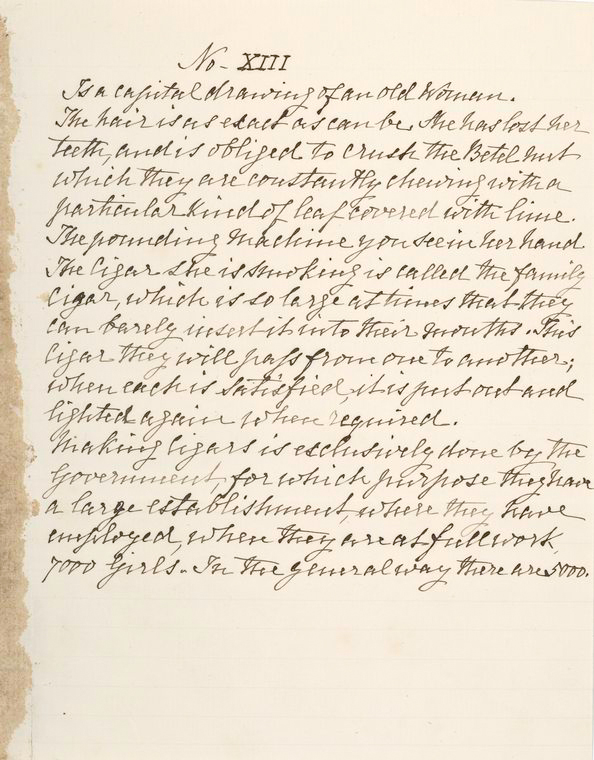 No - XIII
Is a capital drawing of an old Woman.
The hair is as exact as can be. She has lost her
teeth, and is obliged to crush the Betel nut
which they are constantly chewing with a
particular kind of leaf covered with lime.
The pounding Machine you see in her hand
The Cigar she is smoking is called the family
Cigar, which is so large at times that they
can barely insert it into their mouths. This
Cigar they will pass from one to another;
when each is satisfied, it is put out and
lighted again when required.
Making Cigars is exclusively done by the
Government, for which purpose they have
a large establishment, where they have
employed, when they are at full work,
7000 Girls. In the general way there are 5000.